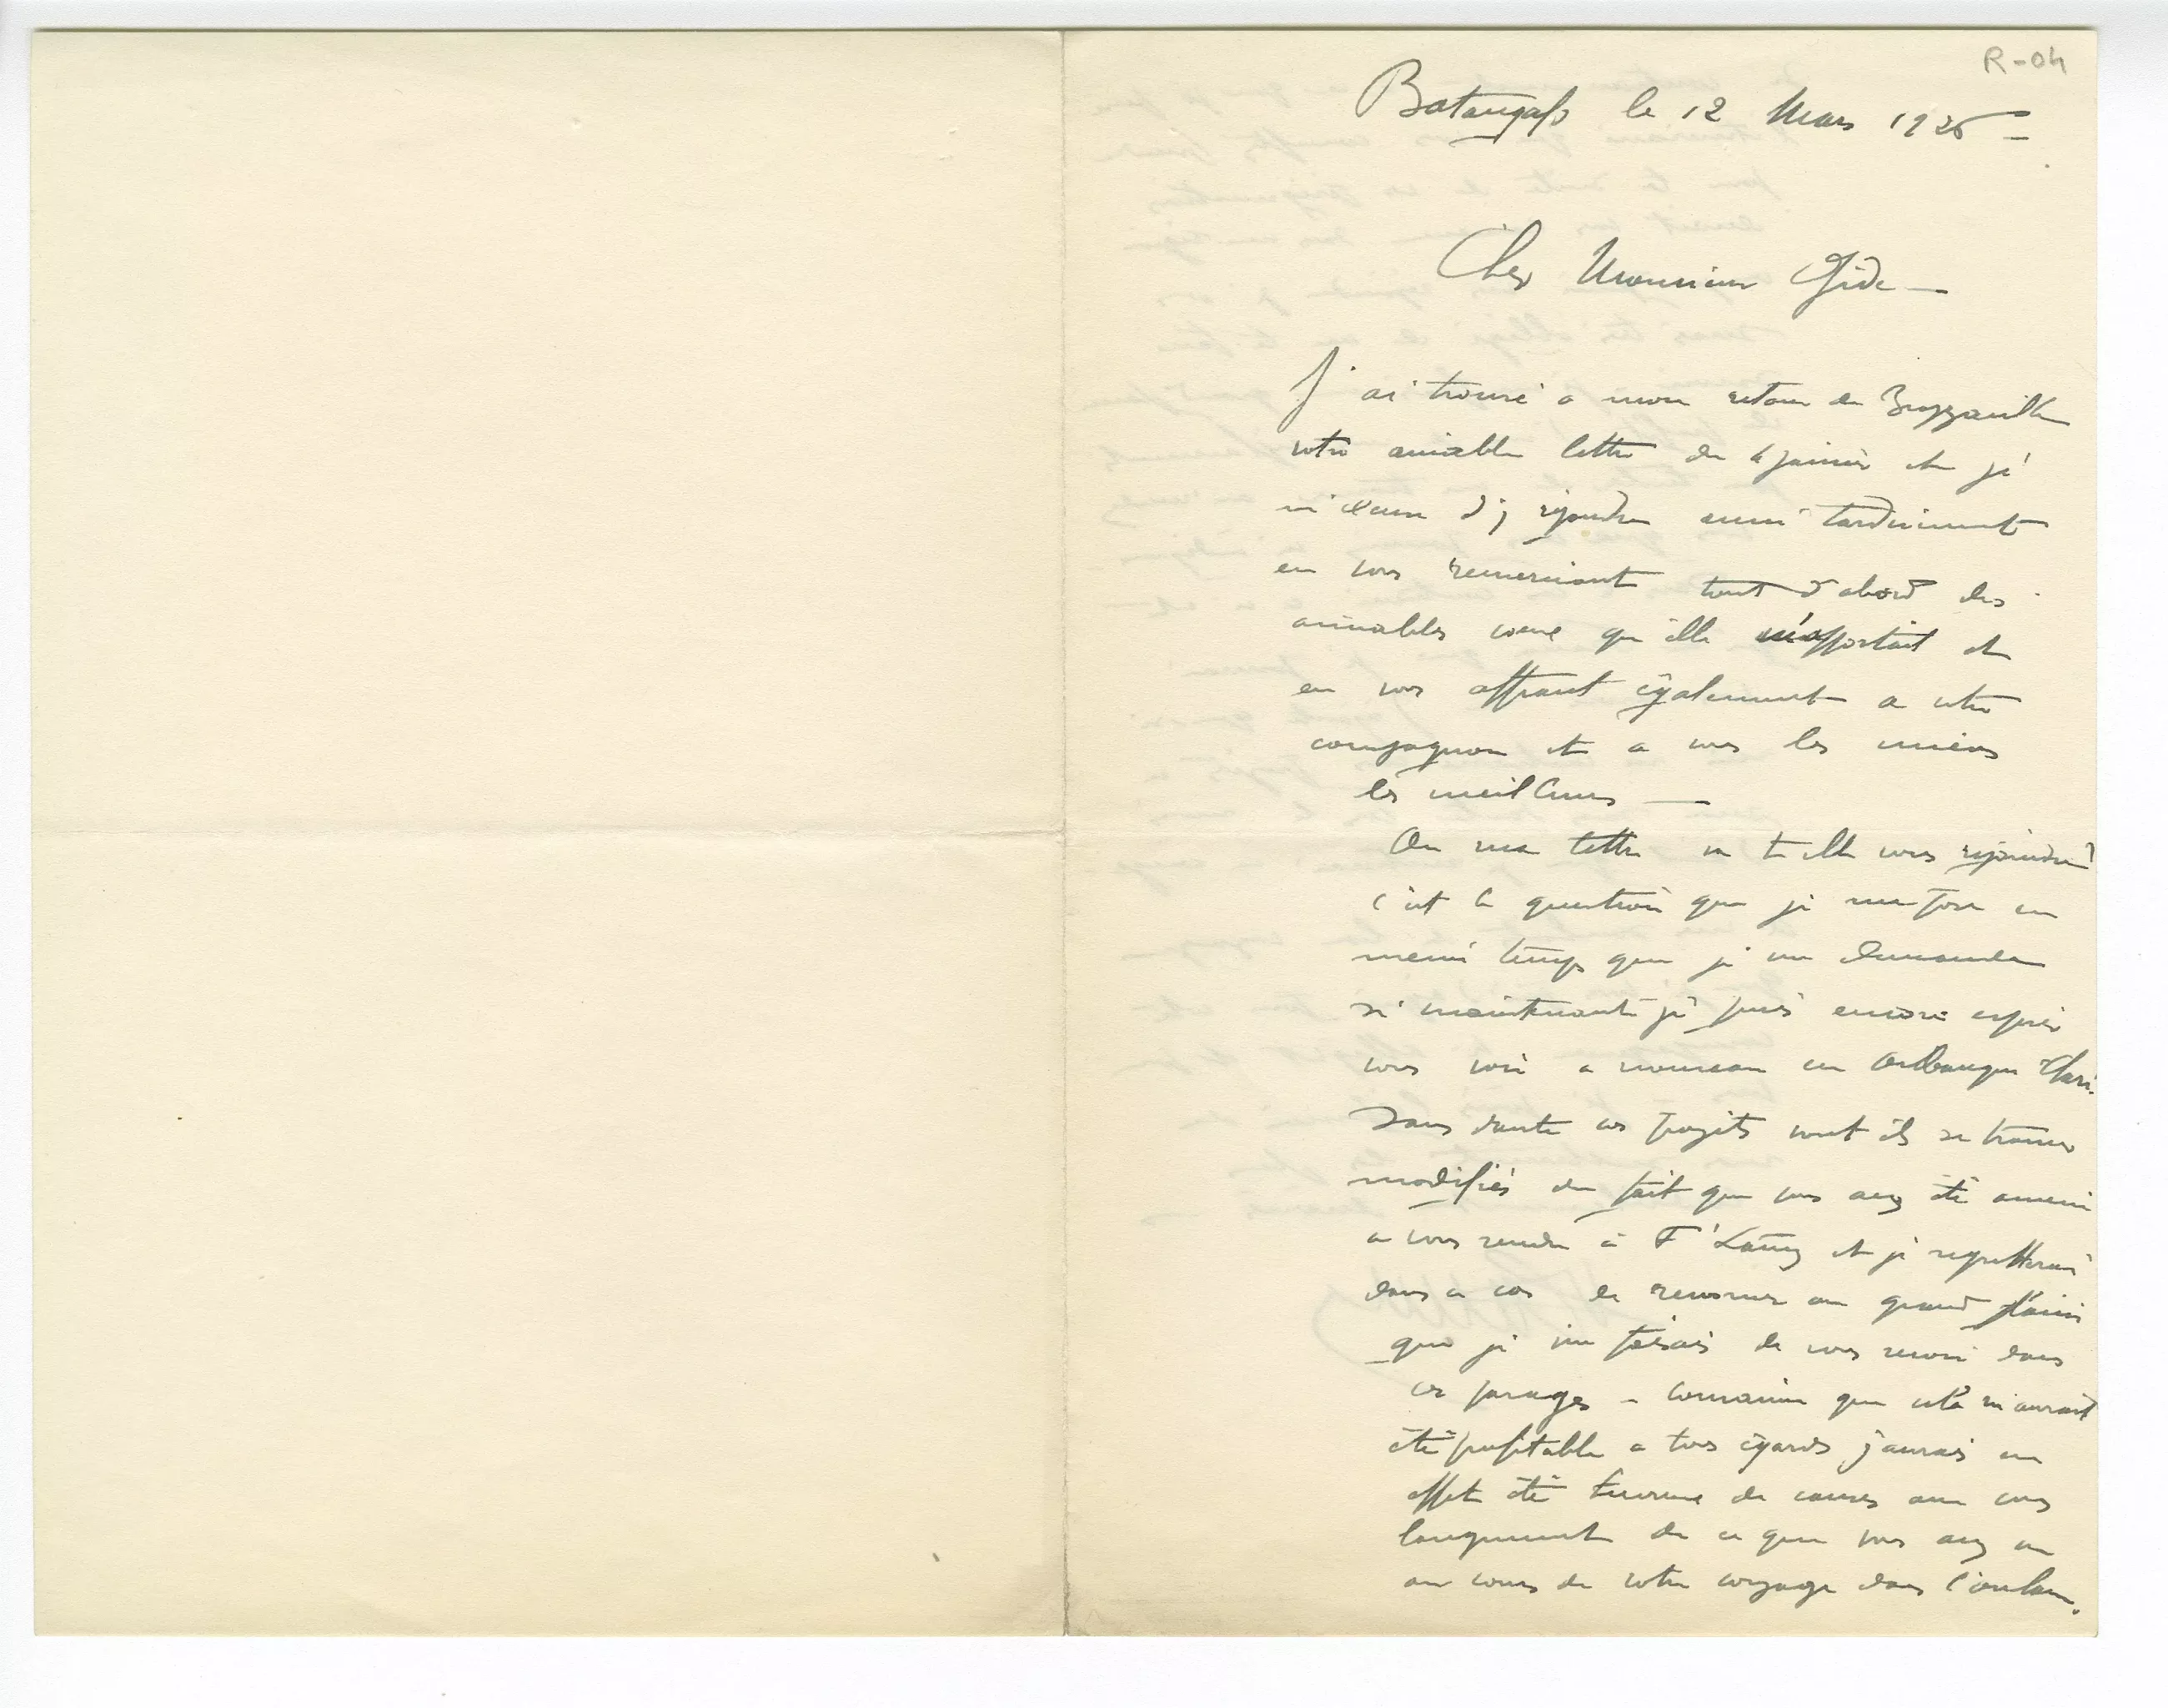 R-04
Batangafo le 12 Mars 1926 -
Cher Monsieur Gide —
J'ai trouvé a mon retour de Brazzaville
votre aimable lettre du 6 janvier et je
m'excuse d'y répondre aussi tardivement
en vous remerciant tout d'abord des
aimables voeux qu'elle m'apportait et
en vous offrant également a votre
compagnon et a vous les miens
les meilleurs —
Ou ma lettre va t elle vous rejoindre?
c'est la question que je me pose en
meme temps que je me demande
si maintenant je puis encore espérer
vous voir a nouveau en Oubangui Chari.
Sans doute vos projets vont ils se trouver
modifiés du fait que vous avez été amené
a vous rendre à Ft Lamy et je regretterai
dans ce cas de renoncer au grand plaisir
que je me faisais de vous revoir dans
ces parages - Convaincu que cela m'aurait
été profitable a tous égards j'aurais en
effet été heureux de causer avec vous
longuement de ce que vous avez vu
au cours de votre voyage dans l'